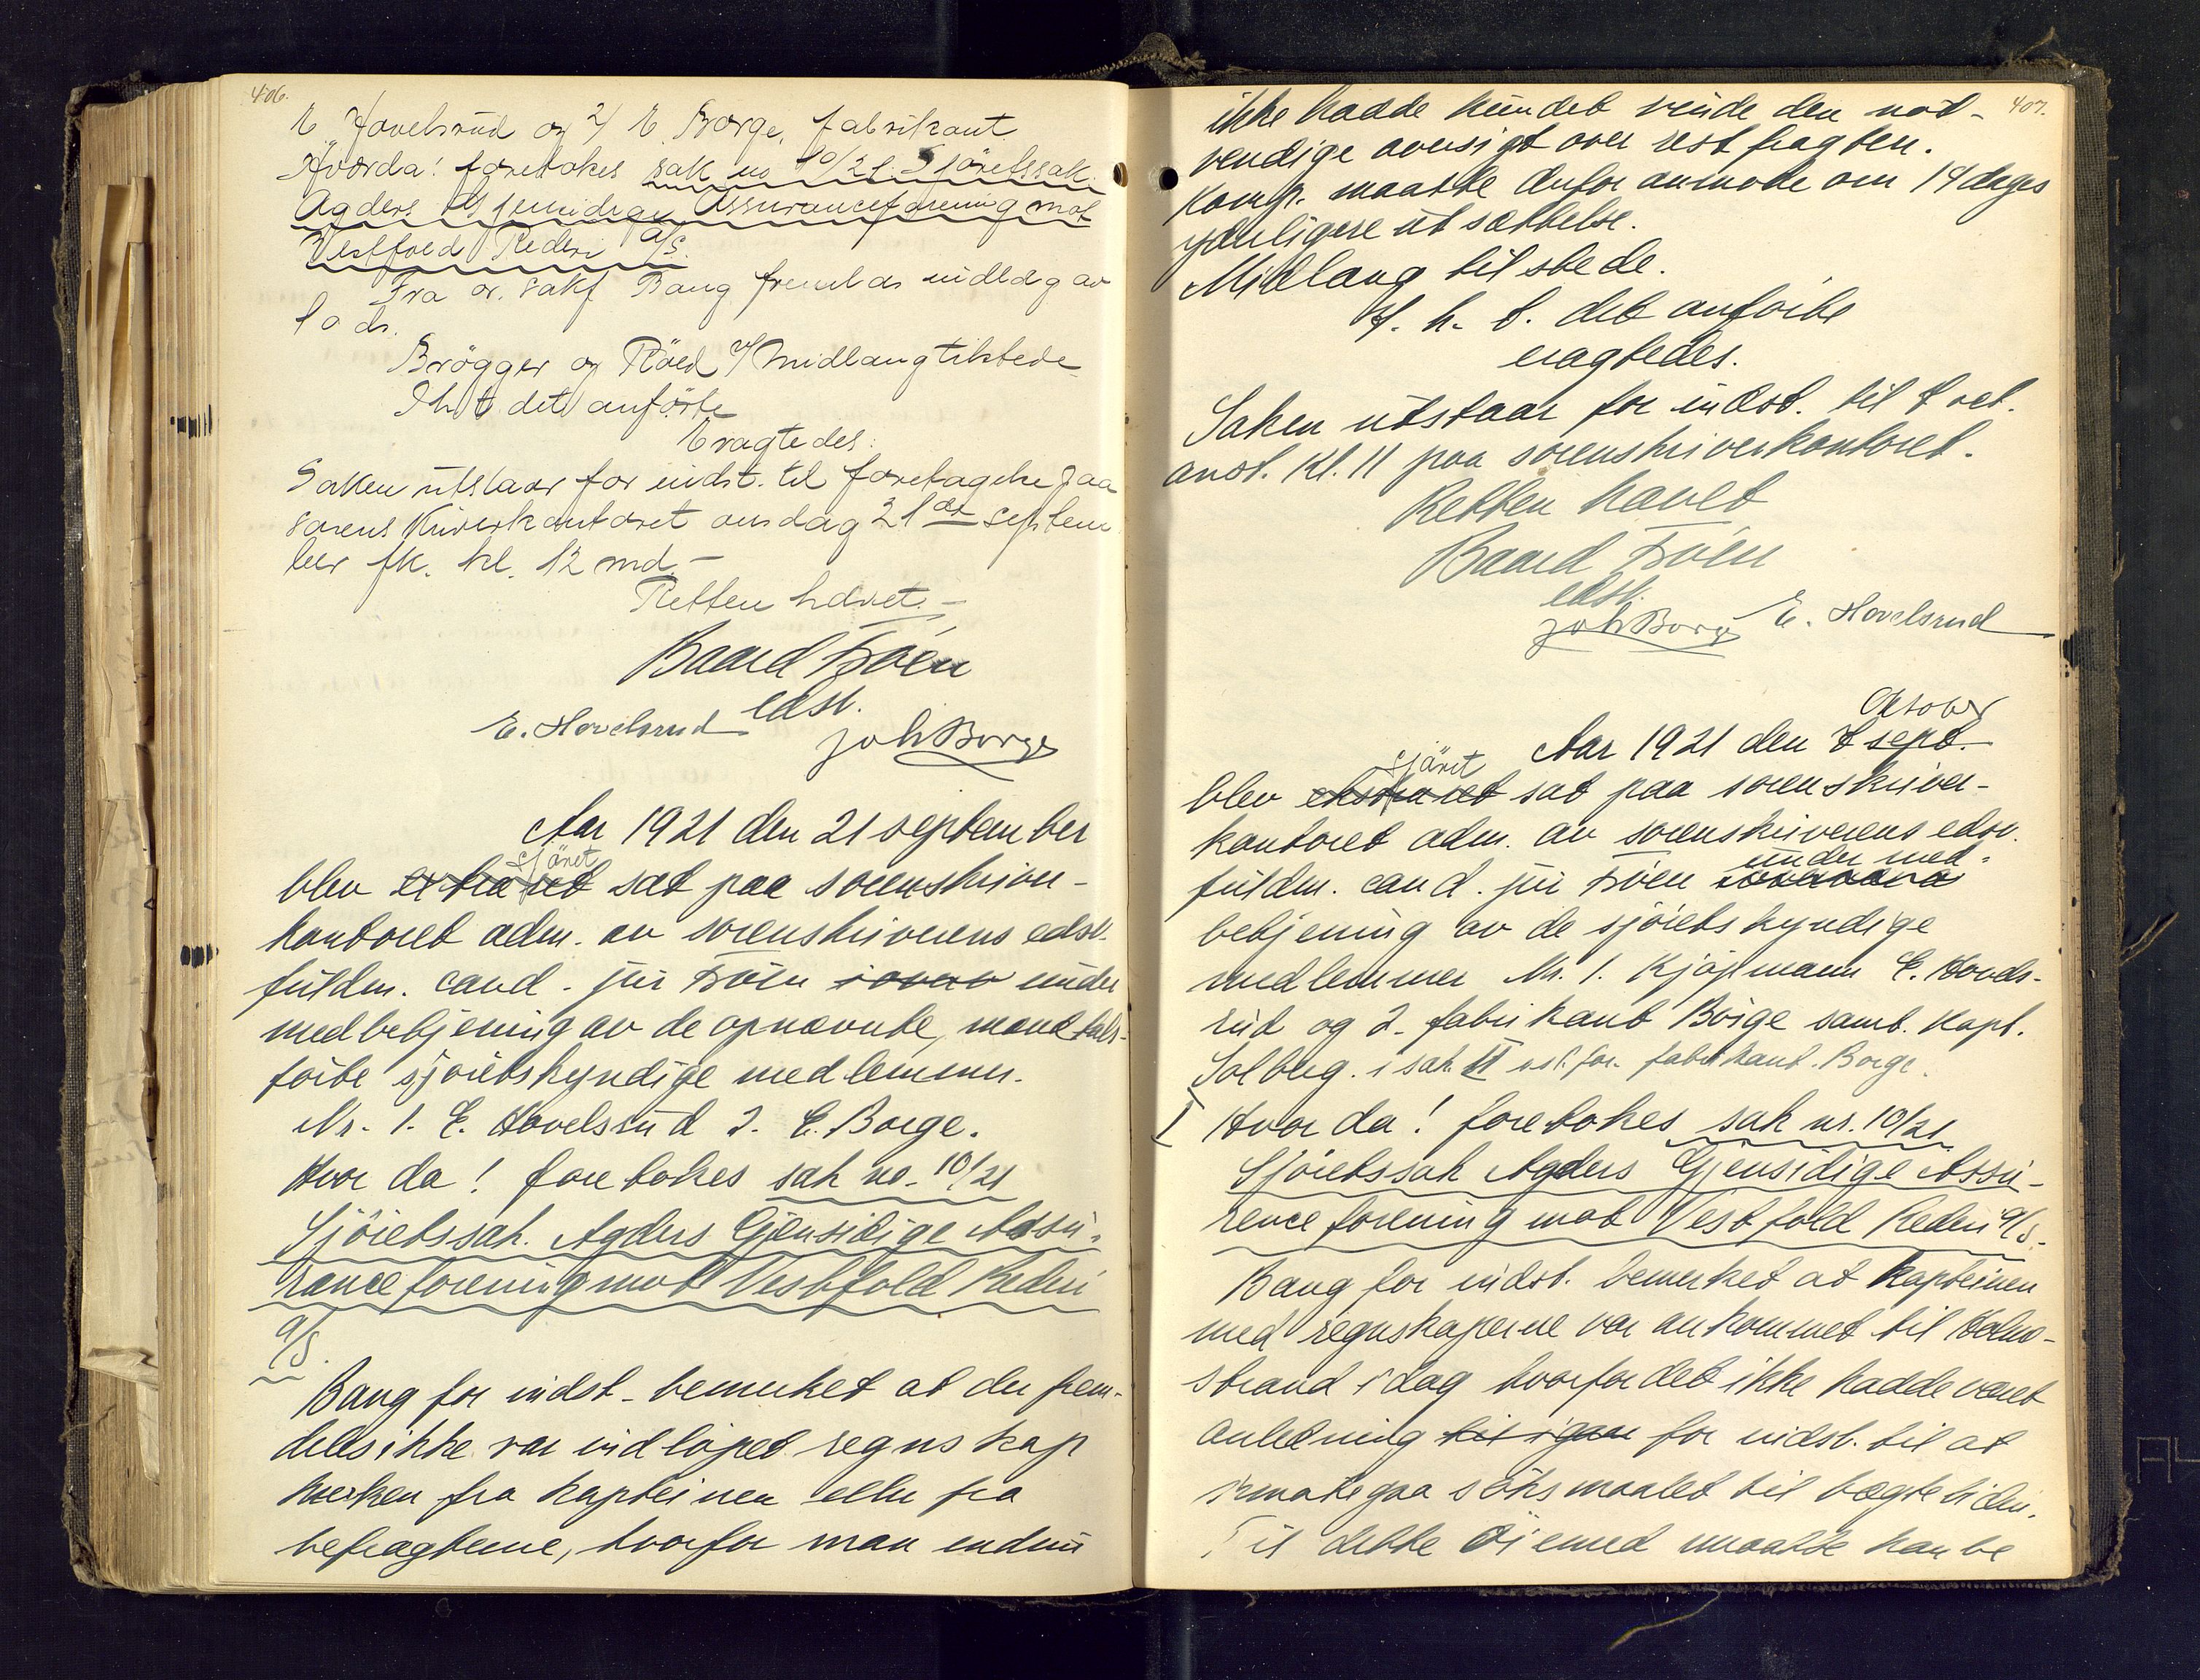 406.
E. Hovelsrud og 2/ E. Borge, fabrikant
Hvorda! foretokes sak no 10/21. Sjöretssak.
Agders Gjensidige Assuranceforening mot
Vestfold Rederi A/S.
Fra o.r. sakf Bang fremlaa indlæg av
10 ds.
Brögger og Röed v/ Midlang tilstede
I h t det anförte
Eragtedes:
Saken utstaar for indst. til foretagelse paa
sorenskriverkontoret onsdag 21de septem
ber fk. kl. 12 md. –
Retten hævet. –
Baard Tröen
edsv.
E. Hovelsrud Joh Borge
Aar 1921 den 21 september
sjöret
blev extraret sat paa sorenskriver-
kontoret adm. av sorenskriverens edsv.
fuldm. cand. jur Tröen under
medbetjening av de opnævnte, mandtals-
førte sjøretskyndige medlemmer.
Nr. 1. E. Hovelsrud 2. E. Borge.
Hvor da! foretokes sak no. 10/21
Sjøretssak. Agders Gjensidige Assu-
ranceforening mot Vestfold Rederi
A/S.
Bang for indst. bemerket at der frem-
deles ikke var indløpet regnskap
hverken fra kapteinen eller fra
befragterne, hvorfor man endnu
407.
ikke hadde kundet vinde den nød-
vendige oversigt over restfragten.
Komp. maatte derfor anmode om 14 dages
yderligere utsættelse.
Midlang tilstede.
I. h. t. det anførte
eragtedes.
Saken utstaar for indst. til 7 okt.
anst. kl. 11 paa sorenskriverkontoret.
Retten hævet
Baard Tröen
edsv.
Joh Borge E. Hovelsrud
Oktober
Aar 1921 den 7 sept.
sjöret
blev ekstraret sat paa sorenskriver-
kontoret adm. av sorenskriverens edsv.
under med-
fuldm. cand. jur Tröen
betjening av de sjøretskyndige
medlemmer Nr. 1. Kjøpmann E. Hovels-
rud og 2. fabrikant Borge samt. Kapt.
Solberg. i sak II istf. for fabrikant. Borge.
I Hvor da! foretokes sak nr. 10/21
Sjøretssak Agders Gjensidige Assu-
ranceforening mot Vestfold Rederi A/S.
Bang for indst. bemerket at kapteinen
med regnskaperne var ankommet til Holme-
strand idag hvorfor det ikke hadde været
anledning til igaar for indst. til at
imøtegaa søksmaalet til bægte tider.
Til dette öiemed maatte han be